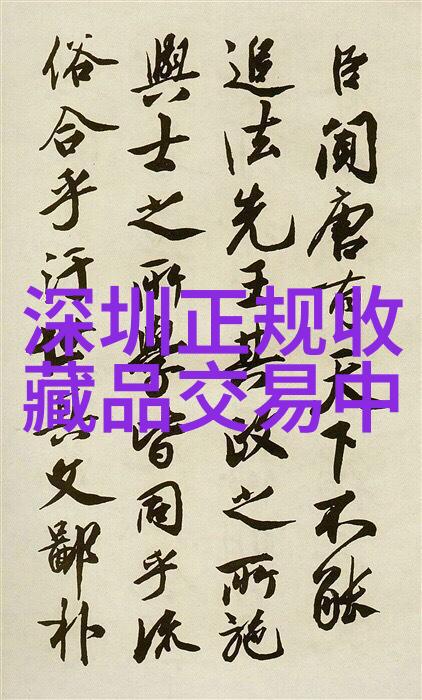 臣聞唐有天下不能
追法先王其政之所施
與士之所學皆同乎流
俗合乎汙世其文鄙朴
深圳正规收
藏品交易中